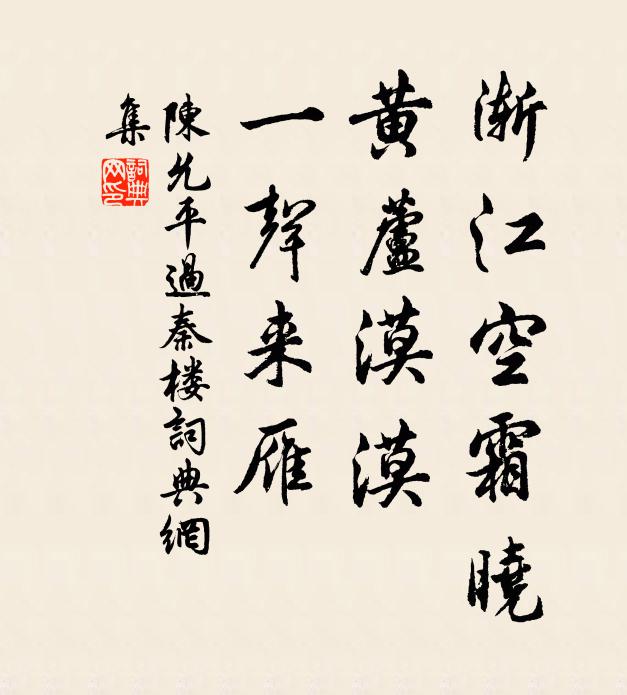 漸江空霜曉
黃蘆漠漠
一聲来雁
陳允平過秦楼詞典網
集
詞典网印